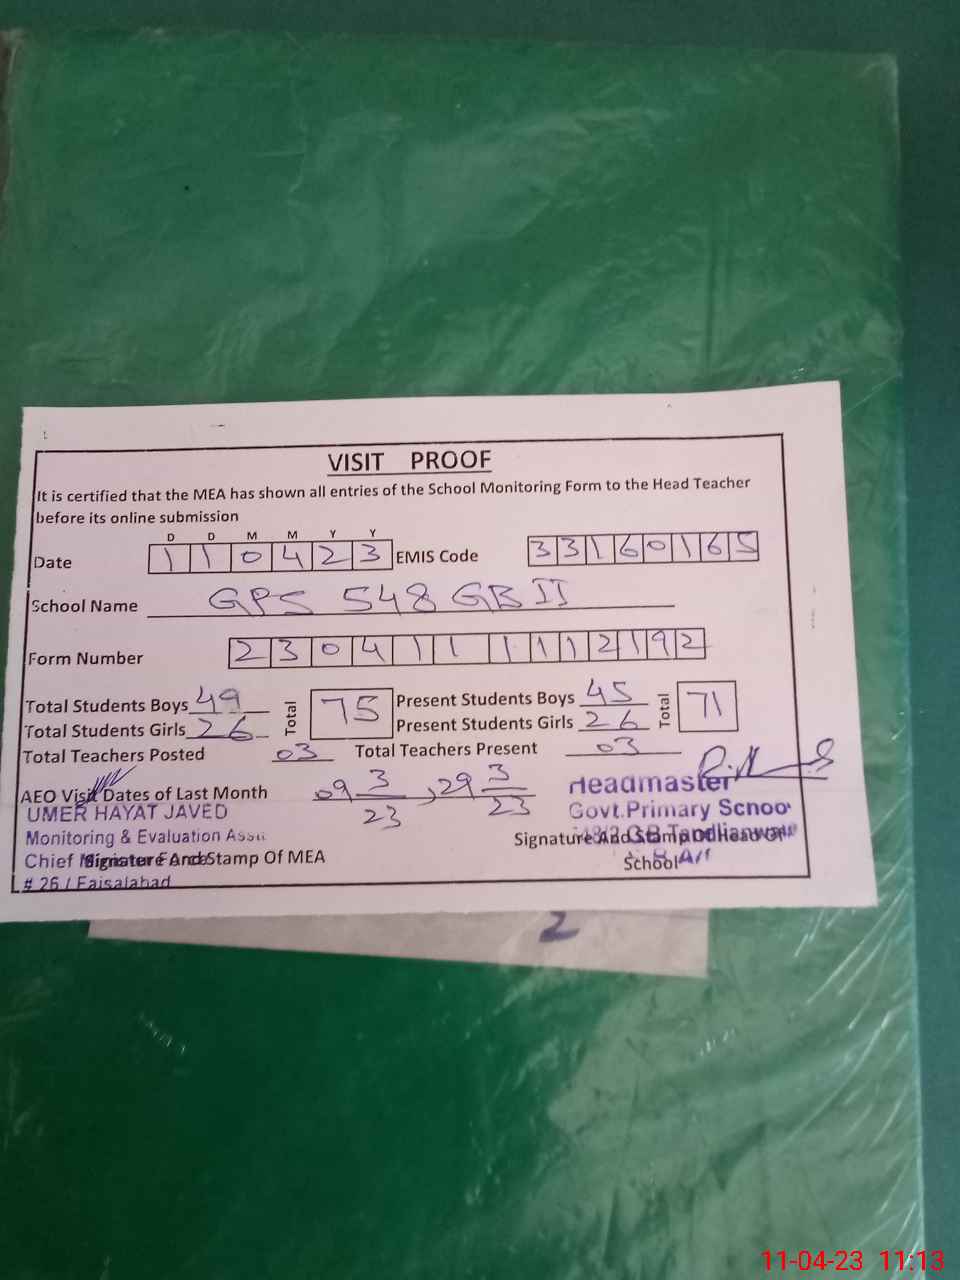 VISIT PROOF
It is certified that the MEA has shown all entries of the School Monitoring Form to the Head Teacher
before its online submission
D D M M Y Y
Date 1 1 0 4 2 3 EMIS Code 3 3 1 6 0 1 6 5
School Name GPS 548 GB II
Form Number 2 3 0 4 1 1 1 1 1 2 1 9 2
Total Students Boys 49 Total 75 Present Students Boys 45 Total 71
Total Students Girls 26 Present Students Girls 26
Total Teachers Posted 03 Total Teachers Present 03
AEO Visit Dates of Last Month 09 3/23, 29 3/23 Headmaster
UMER HAYAT JAVED Govt.Primary Schoo
Monitoring & Evaluation Asst. Signature And Stamp Of Head Of
Chief Signature And Stamp Of MEA School
# 26 / Faisalabad
2
11-04-23 11:13